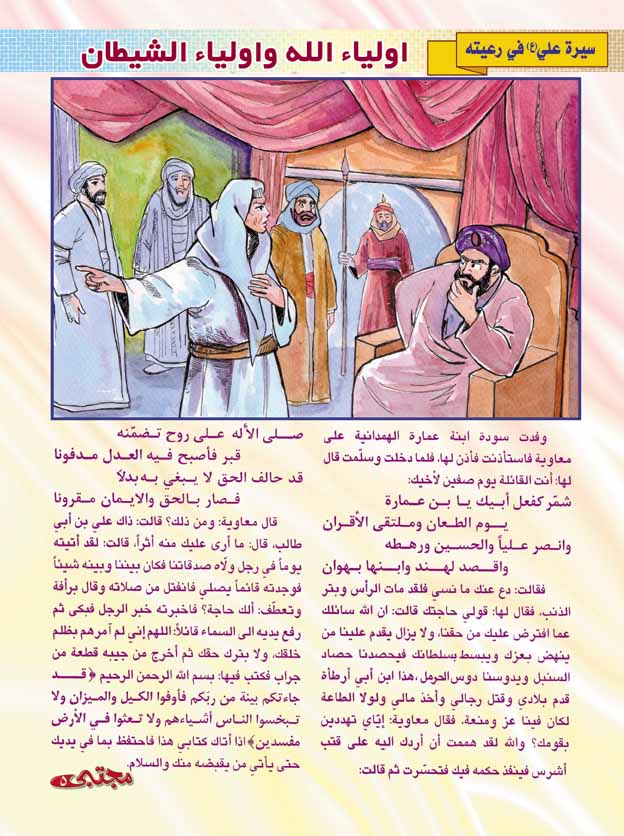 سيرة علي(ع) في رعيته
اولياء الله واولياء الشيطان
وفدت سودة ابنة عمارة الهمدانية على
معاوية فاستأذنت فأذن لها، فلما دخلت وسلّمت قال
لها: أنت القائلة يوم صفين لأخيك:
شمّر كفعل أبيك يا بن عمارة
يوم الطعان وملتقى الأقران
وانصر علياً والحسين ورهطه
واقصد لهند وابنها بهوان
فقالت: دع عنك ما نسي فلقد مات الرأس وبتر
الذنب، فقال لها: قولي حاجتك قالت: ان الله سائلك
عما افترض عليك من حقنا، ولا يزال يقدم علينا من
ينهض بعزك ويبسط بسلطانك فيحصدنا حصاد
السنبل ويدوسنا دوس الحرمل، هذا ابن أبي أرطأة
قدم بلادي وقتل رجالي وأخذ مالي ولولا الطاعة
لكان فينا عز ومنعة، فقال معاوية: إيّاي تهددين
بقومك؟ والله لقد هممت أن أردك اليه على قتب
أشرس فينفذ حكمه فيك فتحسّرت ثم قالت:
صلى الأله على روح تضمّنه
قبر فأصبح فيه العدل مدفونا
قد حالف الحق لا يبغي به بدلاً
فصار بالحق والايمان مقرونا
قال معاوية: ومن ذلك؟ قالت: ذاك علي بن أبي
طالب، قال: ما أرى عليك منه أثراً، قالت: لقد أتيته
يوماً في رجل ولّاه صدقاتنا فكان بيننا وبينه شيئاً
فوجدته قائماً يصلي فانفتل من صلاته وقال برأفة
وتعطّف: ألك حاجة؟ فاخبرته خبر الرجل فبكى ثم
رفع يديه الى السماء قائلاً: اللهم إني لم آمرهم بظلم
خلقك، ولا بترك حقك ثم أخرج من جيبه قطعة من
جراب فكتب فيها: بسم الله الرحمن الرحيم ﴿قد
جاءتكم بينة من ربّكم فأوفوا الكيل والميزان ولا
تبخسوا الناس أشياءهم ولا تعثوا في الأرض
مفسدين﴾ اذا أتاك كتابي هذا فاحتفظ بما في يديك
حتى يأتي من يقبضه منك والسلام.
مجتبى
٥